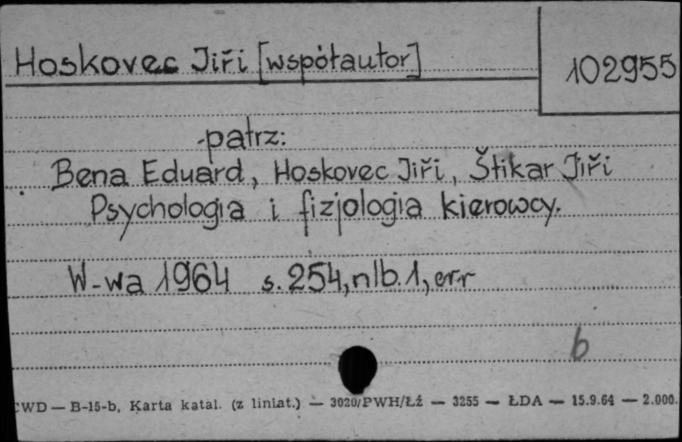 Hoskovec Jiří [współautor]
102955
-patrz:
Bena Eduard, Hoskovec Jiří, Štikar Jiří
Psychologia i fizjologia kierowcy.
W-wa 1964 s. 254, nlb. 1, err
b
CWD — B-15-b, Karta katal. (z liniat.) — 3020/PWH/Łź — 3255 — ŁDA — 15.9.64 — 2.000.